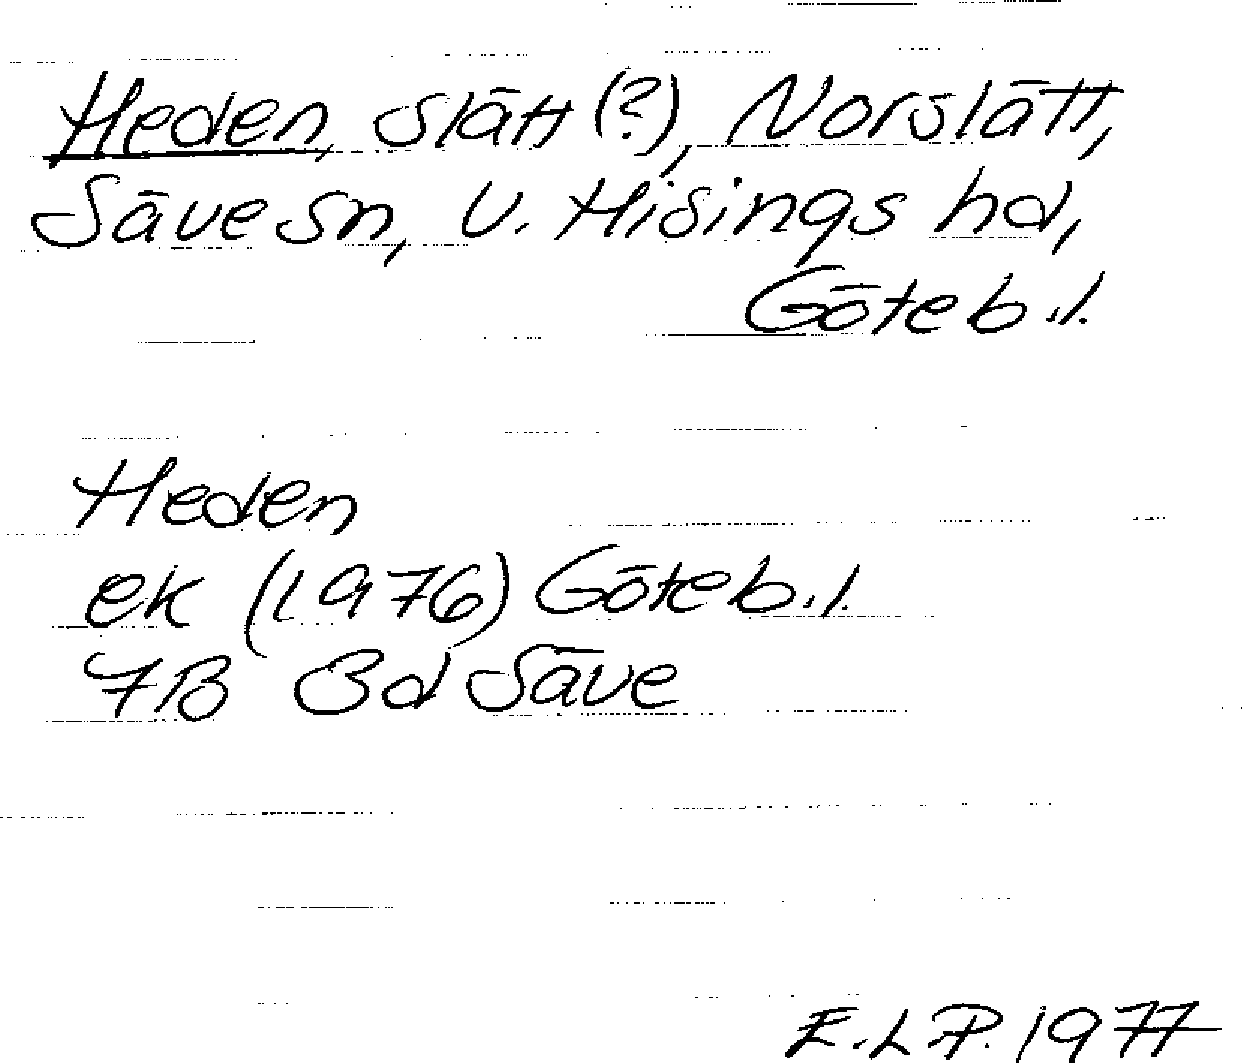 Heden, slätt (?), Norslätt,
Säve sn, V. Hisings hd,
Göteb. l.
Heden
ek (1976) Göteb. l.
7B 3d Säve
E.L.P. 1977